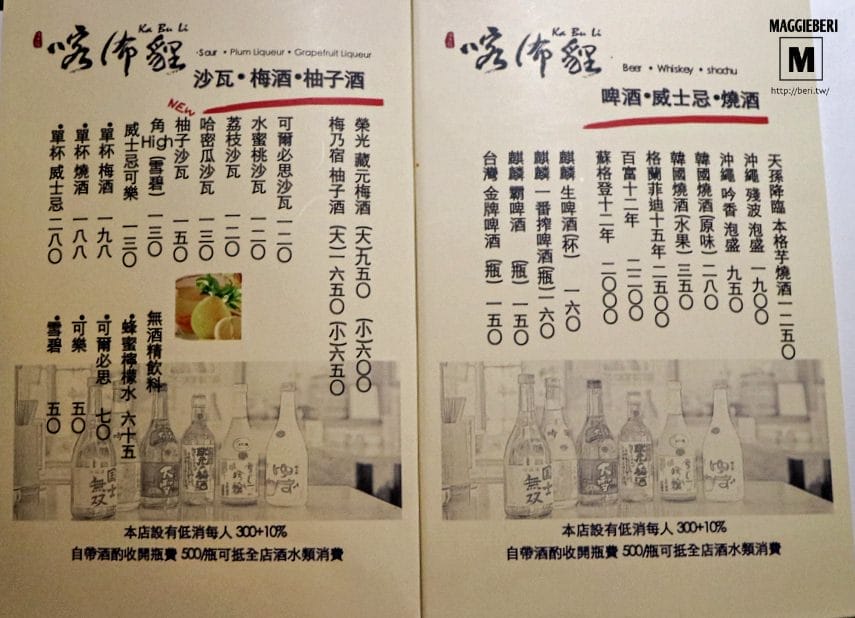 喀佈貍
Ka Bu Li
Sour • Plum Liqueur • Grapefruit Liqueur
沙瓦•梅酒•柚子酒
NEW
榮光 藏元梅酒 (大)九五〇 (小)六〇〇
梅乃宿 柚子酒 (大)一六五〇 (小)六五〇
可爾必思沙瓦 一二〇
水蜜桃沙瓦 一二〇
荔枝沙瓦 一二〇
哈密瓜沙瓦 一三〇
柚子沙瓦 一五〇
角High(雪碧) 一三〇
威士忌可樂 一三〇
•單杯 梅酒 一九八
•單杯 燒酒 一八八
•單杯 威士忌 二八〇
無酒精飲料
•蜂蜜檸檬水 六十五
•可爾必思 七〇
•可樂 五〇
•雪碧 五〇
本店設有低消每人 300+10%
自帶酒酌收開瓶費 500/瓶可抵全店酒水類消費
喀佈貍
Ka Bu Li
Beer • Whiskey • shochu
啤酒•威士忌•燒酒
天孫降臨 本格芋燒酒 一二五〇
沖繩 殘波 泡盛 一九〇〇
沖繩 吟香 泡盛 九五〇
韓國燒酒(原味) 二八〇
韓國燒酒(水果) 三五〇
格蘭菲迪十五年 二五〇〇
百富十二年 二二〇〇
蘇格登十二年 二〇〇〇
麒麟 生啤酒(杯) 一六〇
麒麟 一番搾啤酒(瓶) 一六〇
麒麟 霸啤酒 (瓶) 一五〇
台灣 金牌啤酒 (瓶) 一五〇
本店設有低消每人 300+10%
自帶酒酌收開瓶費 500/瓶可抵全店酒水類消費
MAGGIEBERI
M
http://beri.tw/